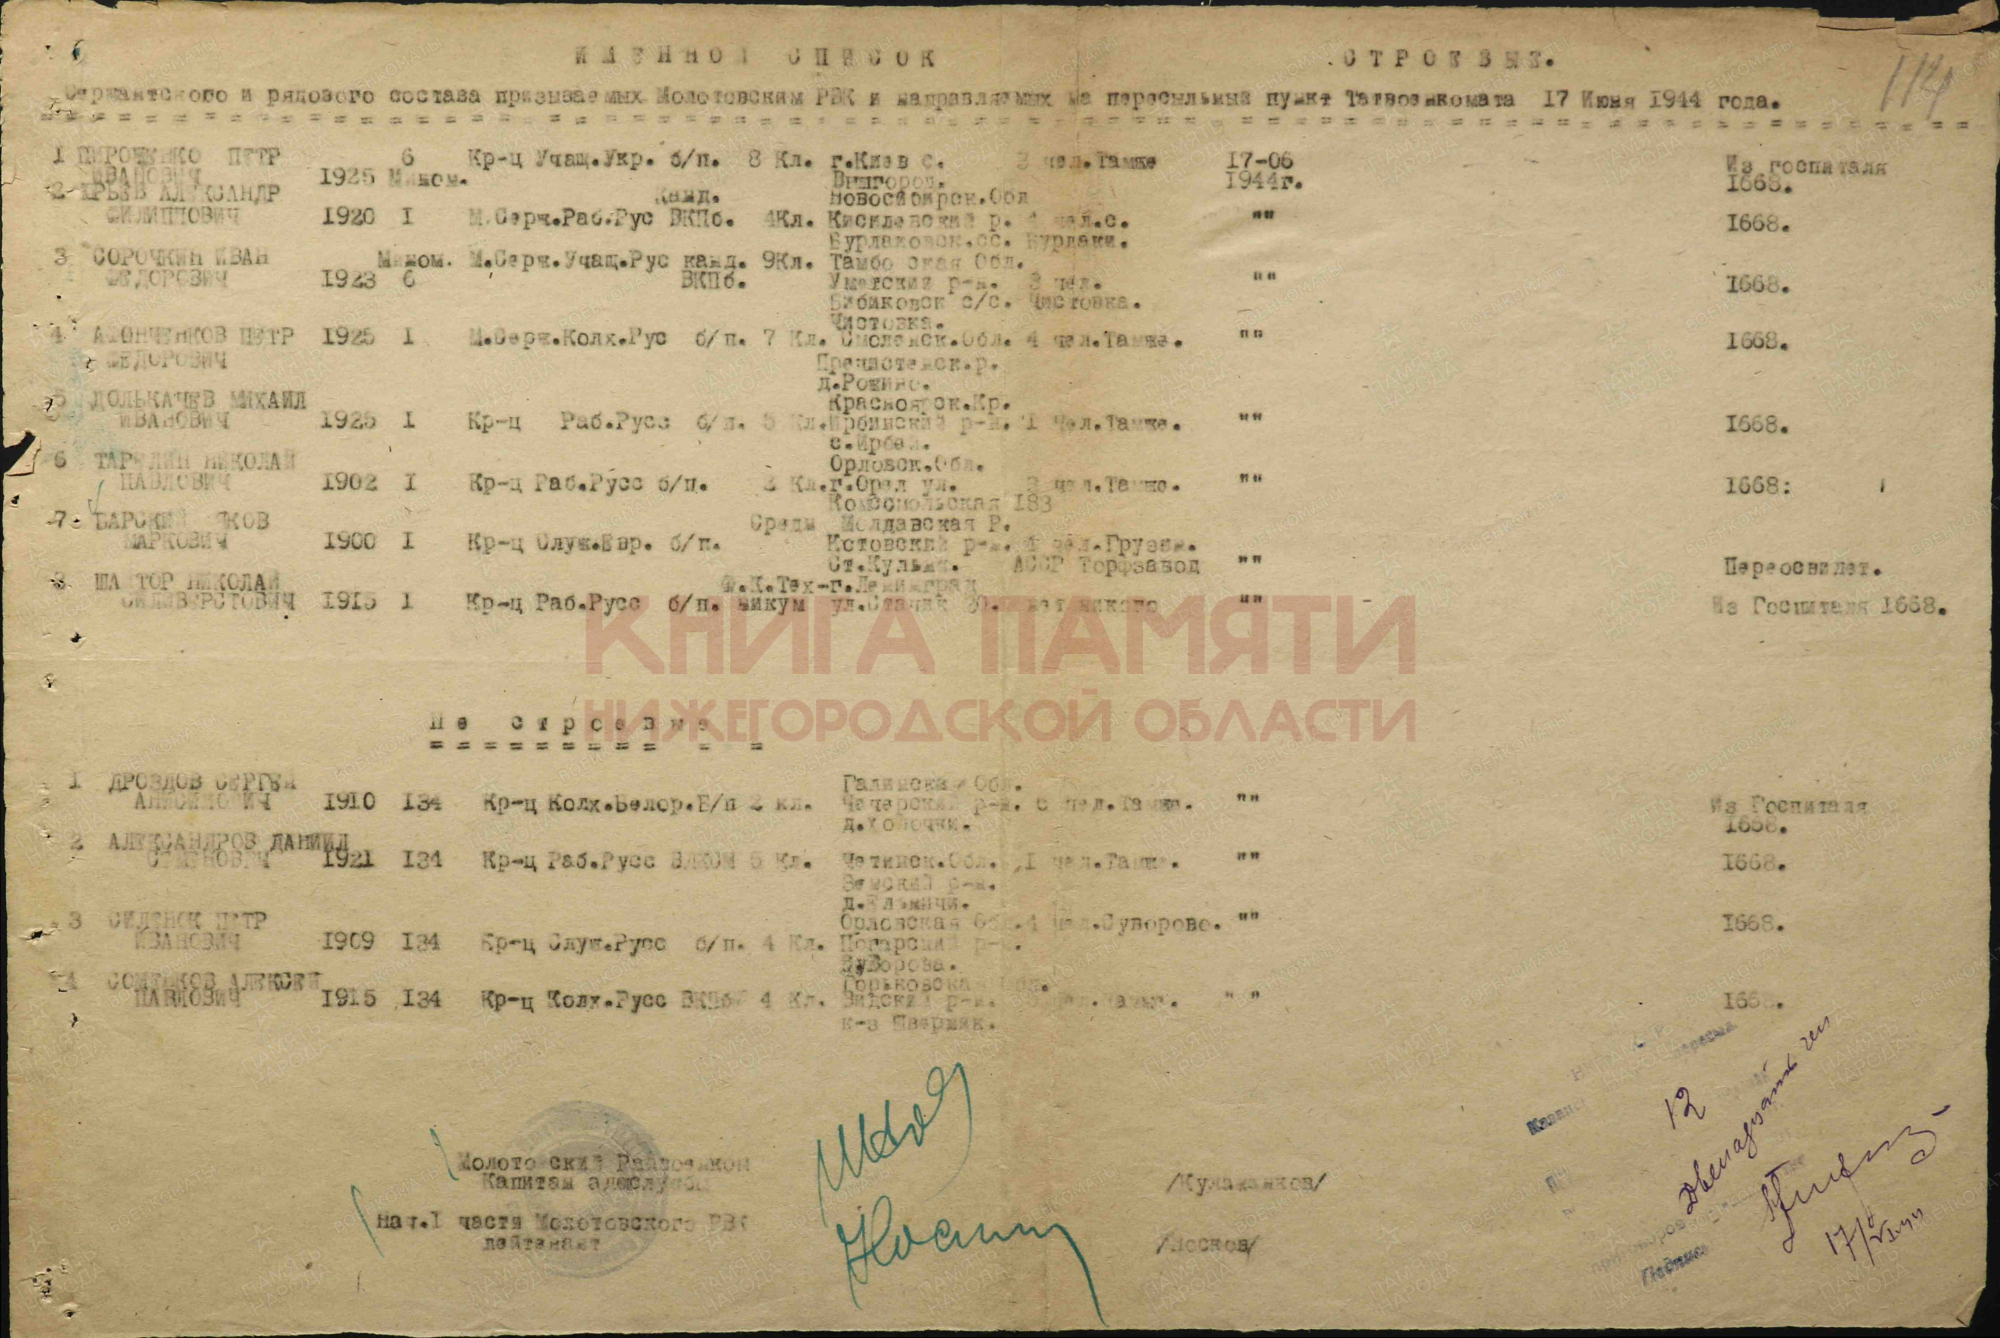 ИМЕННОЙ СПИСОК СТРОЕВЫЕ.
114
Сержантского и рядового состава призываемых Молотовским РВК и направляемых на пересыльный пункт Татвоенкомата 17 Июня 1944 года.
1 ПИРОЖЕНКО ПЕТР 6 Кр-ц Учащ.Укр. б/п. 8 Кл. г.Киев с. 3 чел.Тамже 17-06 Из госпиталя
ИВАНОВИЧ 1925 Мином. Вышгород. 1944г. 1668.
2 АЛЕКСАНДР Канд. Новосибирск.Обл
ФИЛИППОВИЧ 1920 I М.Серж.Раб.Рус ВКПб. 4Кл. Киселевский р. 4 чел.с. "" 1668.
Бурлаковск.сс. Бурлаки.
3 СОРОЧКИН ИВАН Мином. М.Серж.Учащ.Рус канд. 9Кл. Тамбо ская Обл.
ФЕДОРОВИЧ 1923 6 ВКПб. Уметский р-н. 3 чел. "" 1668.
Бибиковск с/с. Чистовка.
Чистовка.
4 АФОНЧЕНКОВ ПЕТР 1925 I М.Серж.Колх.Рус б/п. 7 Кл. Смоленск.Обл. 4 чел.Тамже. "" 1668.
ФЕДОРОВИЧ Пречистенск.р.
д.Рожино.
5 ДОЛЬКАЧЕВ МИХАИЛ Красноярск.Кр.
ИВАНОВИЧ 1925 I Кр-ц Раб.Русс б/п. 5 Кл.Ирбинский р-н. 1 Чел.Тамже. "" 1668.
с.Ирбей.
6 НИКОЛАЙ Орловск.Обл.
ПАВЛОВИЧ 1902 I Кр-ц Раб.Русс б/п. 3 Кл.г.Орел ул. 3 чел.Тамже. "" 1668:
Комсомольская 183
7 БАРСКИЙ ЯКОВ Средн Молдавская Р.
МАРКОВИЧ 1900 I Кр-ц Служ.Евр. б/п. Котовский р-н. 4 чел.Грузин.
Ст.Кульми. АССР Торфзавод "" Переосвидет.
8 ШАХТОР НИКОЛАЙ Ф.К.Тех-г.Ленинград
СИЛИВЕРСТОВИЧ 1915 1 Кр-ц Раб.Русс б/п. никум ул.Стачик нет никого "" Из Госпиталя 1668.
КНИГА ПАМЯТИ
НИЖЕГОРОДСКОЙ ОБЛАСТИ
Не строевые
1 ДРОЗДОВ СЕРГЕЙ Обл.
АНИСИМОВИЧ 1910 134 Кр-ц Колх.Белор.Б/п 2 кл. Чечерский р-н. 6 чел.Тамже. "" Из Госпиталя
д.Холочки. 1668.
2 АЛЕКСАНДРОВ ДАНИИЛ
СЕМЕНОВИЧ 1921 134 Кр-ц Раб.Русс ВЛКСМ 5 Кл. Читинск.Обл. ,1 чел.Тамже. "" 1668.
р-н.
3 СИДЕНОК ПЕТР Орловская Обл.4 чел.Суворово. ""
ИВАНОВИЧ 1909 134 Кр-ц Служ.Русс б/п. 4 Кл. Погарский р-н. 1668.
Суворова.
4 АЛЕКСЕЙ Горьковская Обл.
ПАВЛОВИЧ 1915 134 Кр-ц Колх.Русс ВКПб 4 Кл. р-н. чел.Тамже. " " 1668.
к-з
12
Двенадцать чел
Молотовский Райвоенком
Капитан админслужбы
Нач.1 части Молотовского РВК /Носков/
лейтенант
Подпись
17/VI-44